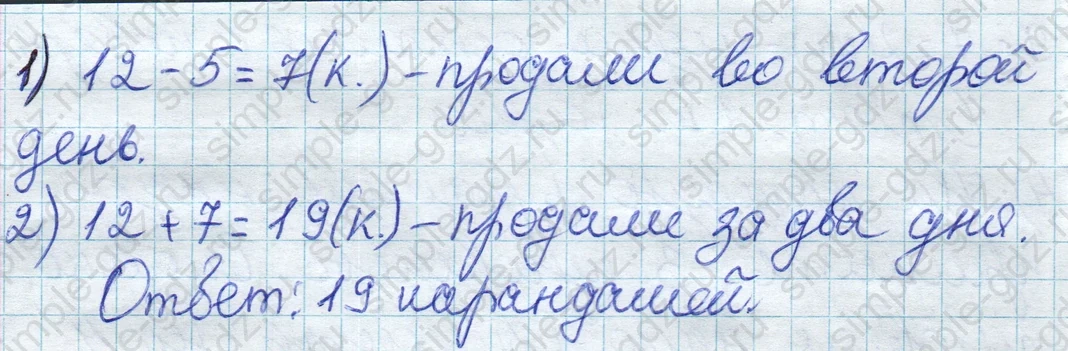 1) 12 - 5 = 7 (к.) - продали во второй
день.
2) 12 + 7 = 19 (к.) - продали за два дня.
Ответ: 19 карандашей.
simple-gdz.ru